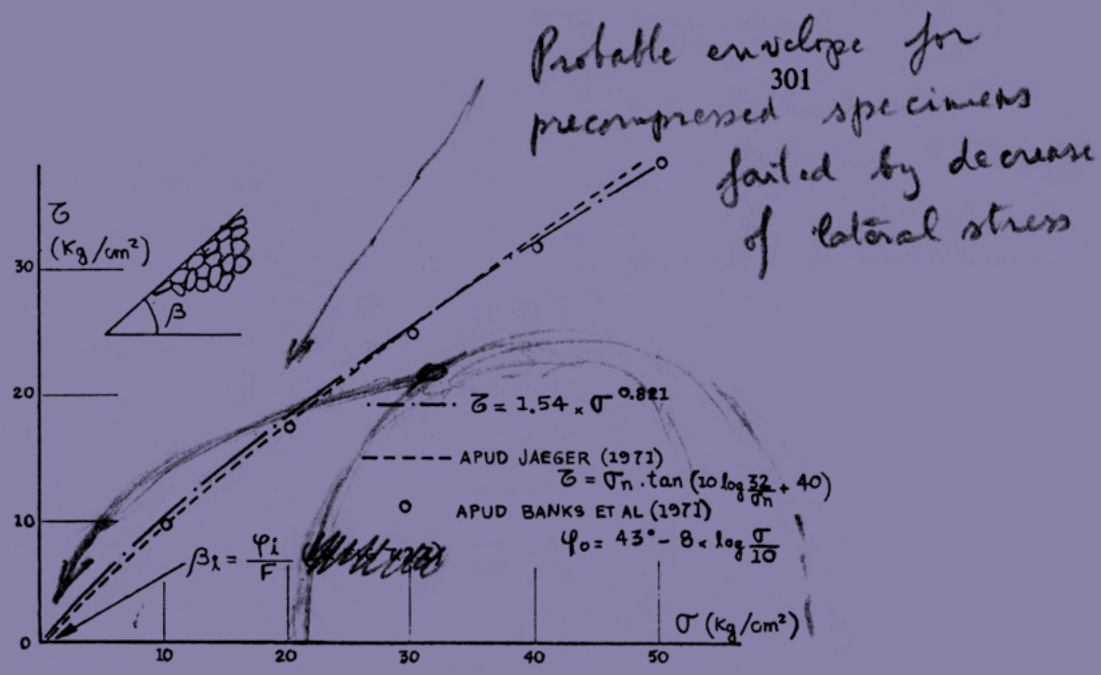 Probable envelope for
301
precompressed specimens
failed by decrease
of lateral stress
τ
(Kg/cm²)
30
β
20
τ = 1.54 × σ^0.821
APUD JAEGER (1971)
τ = σn . tan (10 log 32/σn + 40)
APUD BANKS ET AL (1971)
φ₀ = 43° - 8 × log σ/10
10
βi = φi/F
σ (Kg/cm²)
0
10 20 30 40 50